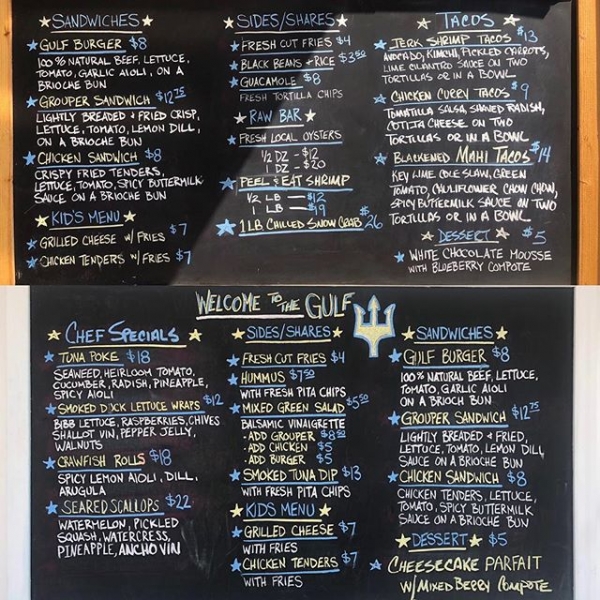 SANDWICHES
GULF BURGER $8
100% NATURAL BEEF, LETTUCE,
TOMATO, GARLIC AIOLI, ON A
BRIOCHE BUN
GROUPER SANDWICH $12.75
LIGHTLY BREADED + FRIED CRISP,
LETTUCE, TOMATO, LEMON DILL,
ON A BRIOCHE BUN
CHICKEN SANDWICH $8
CRISPY FRIED TENDERS,
LETTUCE, TOMATO, SPICY BUTTERMILK
SAUCE ON A BRIOCHE BUN
KID'S MENU
GRILLED CHEESE W/ FRIES $7
CHICKEN TENDERS W/ FRIES $7
SIDES/SHARES
FRESH CUT FRIES $4
BLACK BEANS + RICE $3.50
GUACAMOLE $8
FRESH TORTILLA CHIPS
RAW BAR
FRESH LOCAL OYSTERS
1/2 DZ - $12
1 DZ - $20
PEEL & EAT SHRIMP
1/2 LB — $12
1 LB — $19
1 LB CHILLED SNOW CRAB $26
TACOS
JERK SHRIMP TACOS $13
AVOCADO, KIMCHI, PICKLED CARROTS,
LIME CILANTRO SAUCE ON TWO
TORTILLAS OR IN A BOWL
CHICKEN CURRY TACOS $9
TOMATILLA SALSA, SHAVED RADISH,
COTIJA CHEESE ON TWO
TORTILLAS OR IN A BOWL
BLACKENED MAHI TACOS $14
KEY LIME COLE SLAW, GREEN
TOMATO, CAULIFLOWER CHOW CHOW,
SPICY BUTTERMILK SAUCE ON TWO
TORTILLAS OR IN A BOWL
DESSERT $5
WHITE CHOCOLATE MOUSSE
WITH BLUEBERRY COMPOTE
WELCOME TO THE GULF
CHEF SPECIALS
TUNA POKE $18
SEAWEED, HEIRLOOM TOMATO,
CUCUMBER, RADISH, PINEAPPLE,
SPICY AIOLI
SMOKED DUCK LETTUCE WRAPS $12
BIBB LETTUCE, RASPBERRIES, CHIVES
SHALLOT VIN, PEPPER JELLY,
WALNUTS
CRAWFISH ROLLS $18
SPICY LEMON AIOLI, DILL,
ARUGULA
SEARED SCALLOPS $22
WATERMELON, PICKLED
SQUASH, WATERCRESS,
PINEAPPLE, ANCHO VIN
SIDES/SHARES
FRESH CUT FRIES $4
HUMMUS $7.50
WITH FRESH PITA CHIPS
MIXED GREEN SALAD $5.50
BALSAMIC VINAIGRETTE
- ADD GROUPER $8.50
- ADD CHICKEN $5
- ADD BURGER $5
SMOKED TUNA DIP $13
WITH FRESH PITA CHIPS
KIDS MENU
GRILLED CHEESE $7
WITH FRIES
CHICKEN TENDERS $7
WITH FRIES
SANDWICHES
GULF BURGER $8
100% NATURAL BEEF, LETTUCE,
TOMATO, GARLIC AIOLI
ON A BRIOCH BUN
GROUPER SANDWICH $12.75
LIGHTLY BREADED + FRIED,
LETTUCE, TOMATO, LEMON DILL
SAUCE ON A BRIOCHE BUN
CHICKEN SANDWICH $8
CHICKEN TENDERS, LETTUCE,
TOMATO, SPICY BUTTERMILK
SAUCE ON A BRIOCHE BUN
DESSERT $5
CHEESECAKE PARFAIT
W/ MIXED BERRY COMPOTE